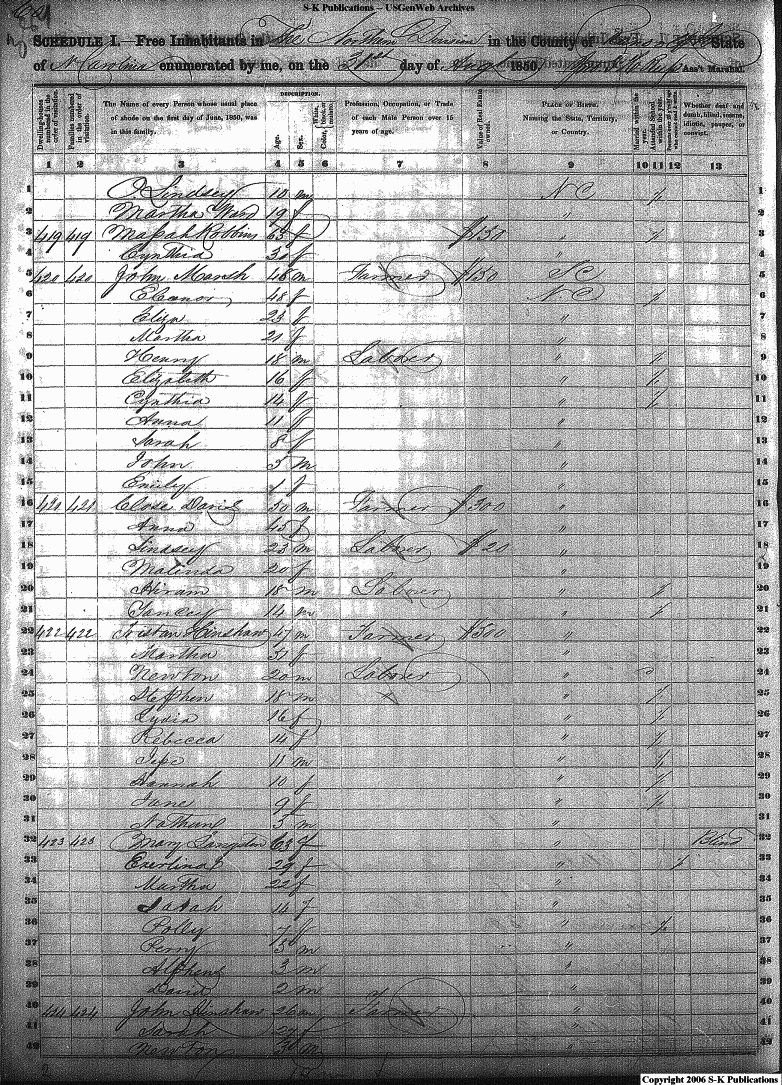 S-K Publications – USGenWeb Archives
SCHEDULE I. Free Inhabitants in The Northern Division in the County of State
of N Carolina enumerated by me, on the day of 1850. Ass't Marshal.
Dwelling-houses numbered in the order of visitation.
Families numbered in the order of visitation.
The Name of every Person whose usual place of abode on the first day of June, 1850, was in this family.
DESCRIPTION.
Age.
Sex.
Color, White, black, or mulatto.
Profession, Occupation, or Trade of each Male Person over 15 years of age.
Value of Real Estate owned.
PLACE OF BIRTH. Naming the State, Territory, or Country.
Married within the year.
Attended School within the year.
Whether deaf and dumb, blind, insane, idiotic, pauper, or convict.
1 2 3 4 5 6 7 8 9 10 11 12 13
1 Lindsey 10 m N C / 1
2 Martha Ward 19 f " 2
3 419 419 Robbins 63 f $150 " / 3
4 Cynthia 30 f " 4
5 420 420 John Marsh 48 m Farmer $150 5
6 Eleanor 48 f N C / 6
7 Eliza 23 f " 7
8 Martha 21 f " 8
9 Henry 18 m Laborer " / 9
10 Elizabeth 16 f " / 10
11 Cynthia 14 f " / 11
12 Anna 11 f " 12
13 Sarah 8 f " 13
14 John 5 m " 14
15 Emily 1 f " 15
16 420 421 Close David 50 m Farmer $300 " 16
17 Anna 45 f " 17
18 Lindsey 23 m Laborer $20 " 18
19 Malinda 20 f " 19
20 Hiram 18 m Laborer " / 20
21 Yancey 14 m " / 21
22 422 422 Tristan Hinshaw 47 m Farmer $500 " 22
23 Martha 37 f " 23
24 Newton 20 m Laborer " 24
25 Stephen 18 m " / 25
26 Lydia 16 f " / 26
27 Rebecca 14 f " / 27
28 11 m " / 28
29 Hannah 10 f " / 29
30 Jane 9 f " / 30
31 Nathan 5 m " 31
32 423 423 Mary 63 f " Blind 32
33 29 f " / 33
34 Martha 22 f " 34
35 Sarah 14 f " 35
36 Polly 7 f " / 36
37 Perry 5 m " 37
38 3 m " 38
39 David 2 m " 39
40 424 424 John Hinshaw 26 m Farmer " 40
41 Sarah 27 f " 41
42 Newton m " 42
Copyright 2006 S-K Publications